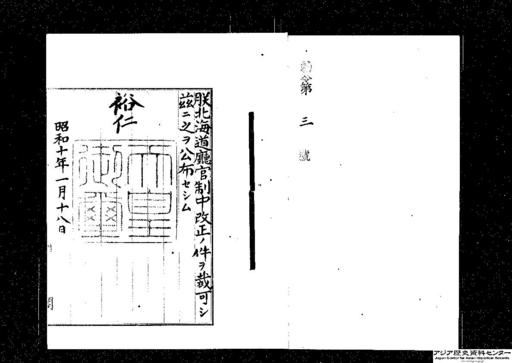 勅令第三號
朕北海道廳官制中改正ノ件ヲ裁可シ
茲ニ之ヲ公布セシム
裕仁
天皇御璽
昭和十年一月十八日
アジア歴史資料センター
Japan Center for Asian Historical Records